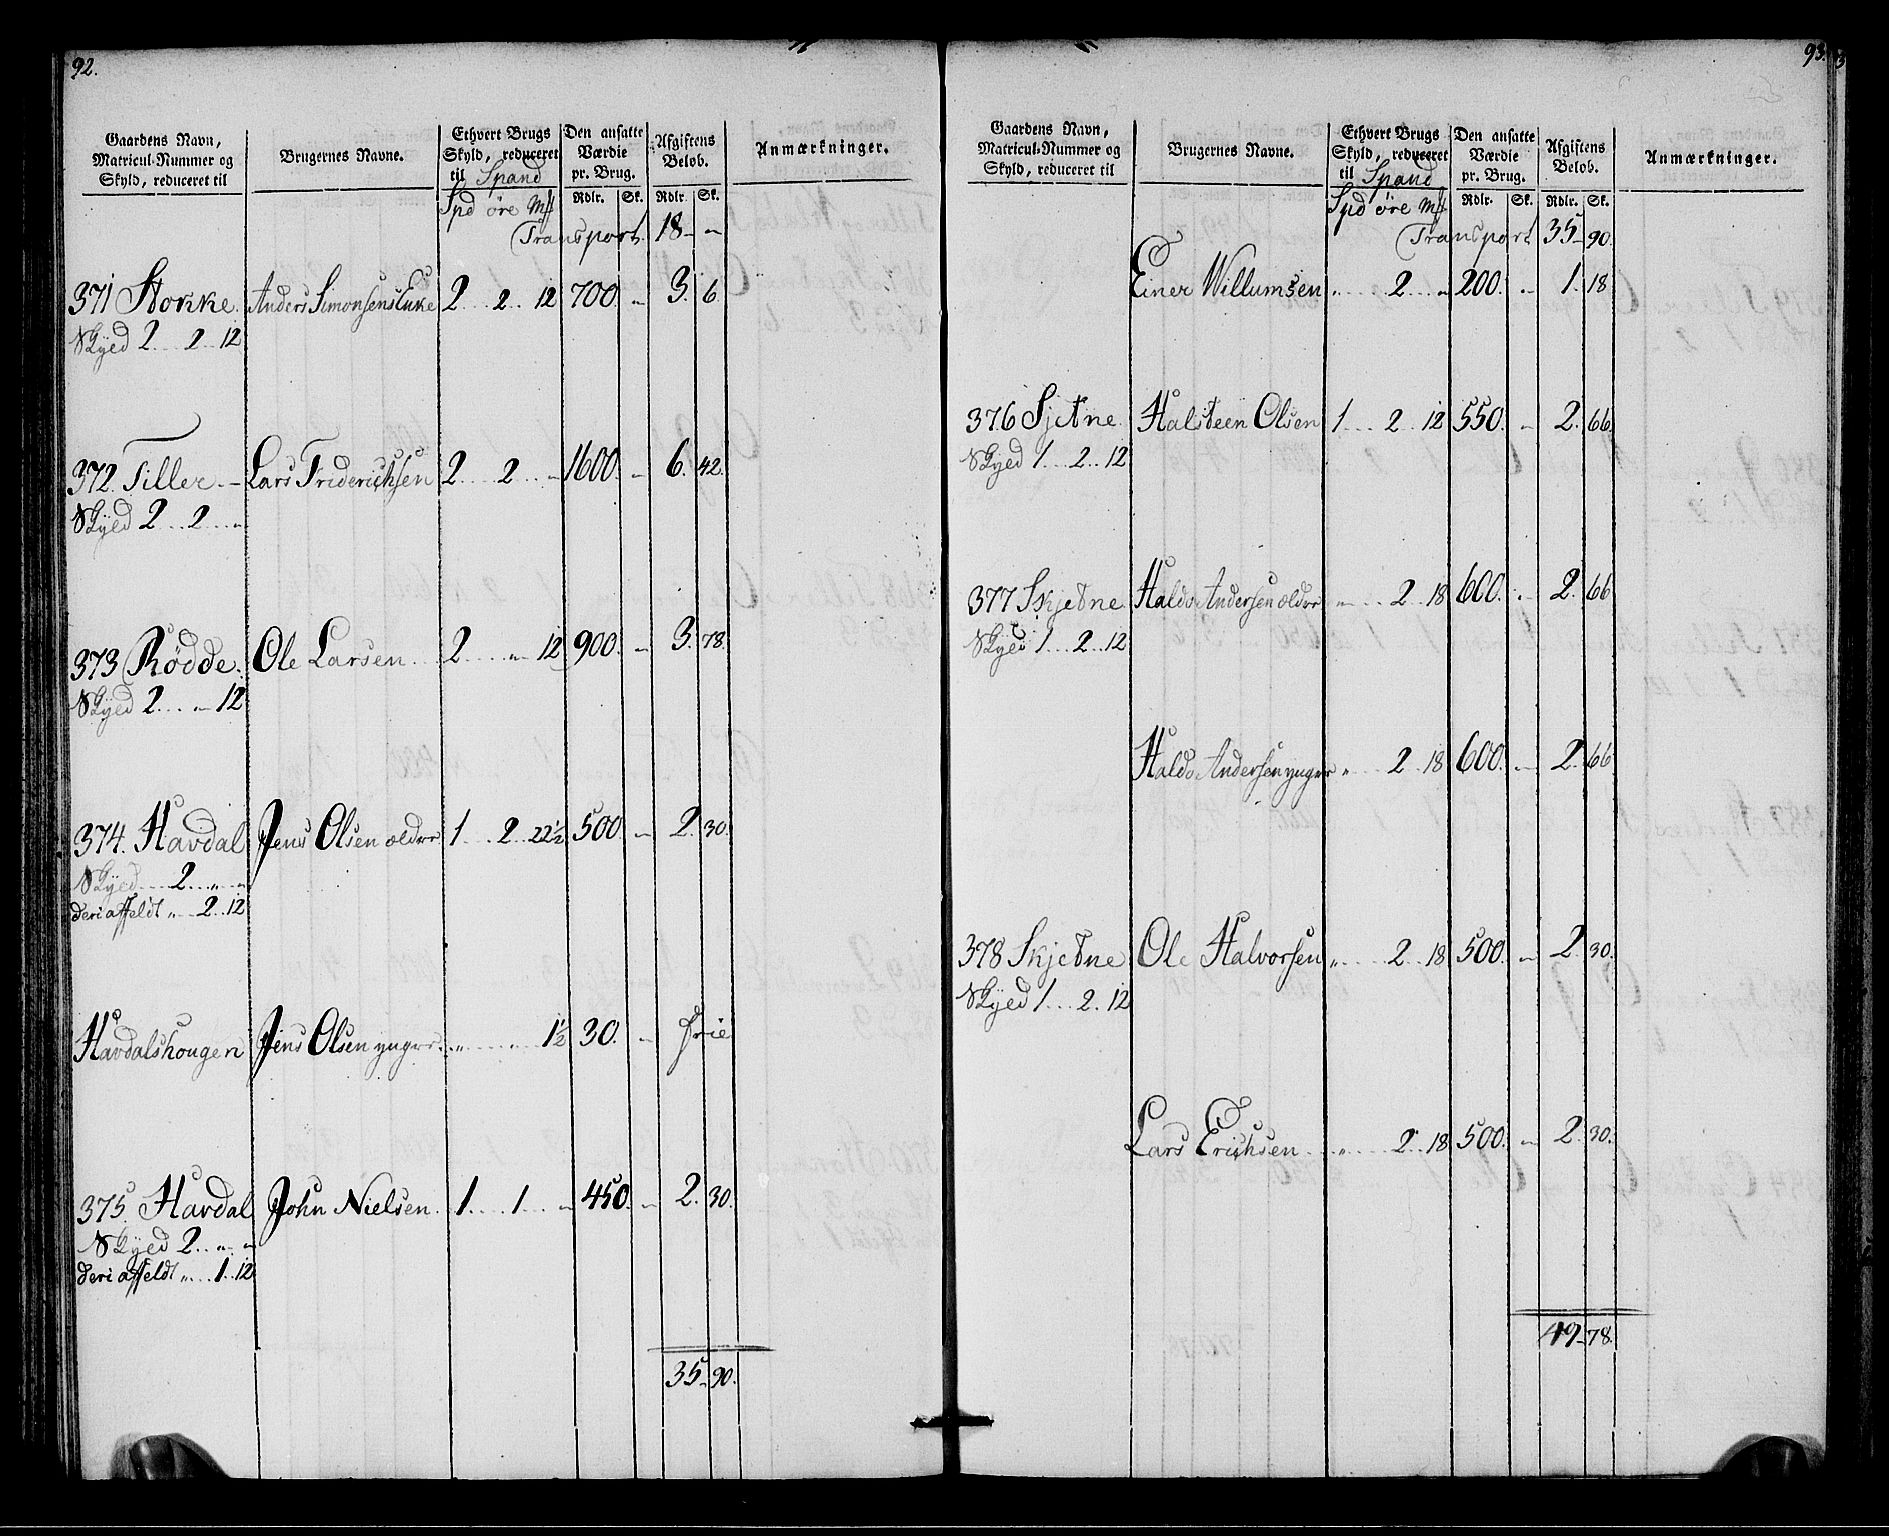 92.
Gaardens Navn, Matricul-Nummer og Skyld, reduceret til | Brugernes Navne. | Ethvert Brugs Skyld, reduceret til Spand | Den ansatte Værdie pr. Brug. | Afgiftens Beløb. | Anmærkninger.
Spd øre Mk | Rdlr. | Sk. | Rdlr. | Sk.
Transport 18 - "
371 Stokke. Anders Simonsens Enke 2 .. 2 .. 12 700. " 3. 6.
Skyed 2 .. 2 .. 12
372. Tiller - Lars Friderichsen 2 .. 2 .. " 1600. " 6. 42.
Skyed 2 .. 2 .. "
373 Rödde. Ole Larsen 2 .. " .. 12 900. " 3. 78.
Skyed 2 .. " 12
374. Havdal Jens Olsen ældre 1 .. 2 .. 22½ 500. " 2. 30.
Skyed 2 .. " .. "
deri affeldt " .. 2 .. 12
Havdalshougen Jens Olsen yngre " .. " .. 1½ 30. " frie
375. Havdal John Nielsen. 1 .. 1 .. " 450. " 2. 30.
Skyed 2 .. " .. "
deri affeldt " .. 1 .. 12
35 - 90.
93.
Gaardens Navn, Matricul-Nummer og Skyld, reduceret til | Brugernes Navne. | Ethvert Brugs Skyld, reduceret til Spand | Den ansatte Værdie pr. Brug. | Afgiftens Beløb. | Anmærkninger.
Spd øre Mk | Rdlr. | Sk. | Rdlr. | Sk.
Transport 35 - 90.
Einer Willumsen " .. 2 .. " 200. " 1. 18
376 Sjetne. Halsteen Olsen 1 .. 2 .. 12 550. " 2. 66.
Skyed 1 .. 2 .. 12
377 Skjetne Haldo Andersen ældre " .. 2 .. 18 600. " 2. 66
Skyed 1 .. 2 .. 12
Haldo Andersen yngre " .. 2 .. 18 600. " 2. 66
378 Skjetne Ole Halvorsen " .. 2 .. 18 500. " 2. 30.
Skyed 1 .. 2 .. 12
Lars Erichsen " .. 2 .. 18 500. " 2. 30.
49 - 78.